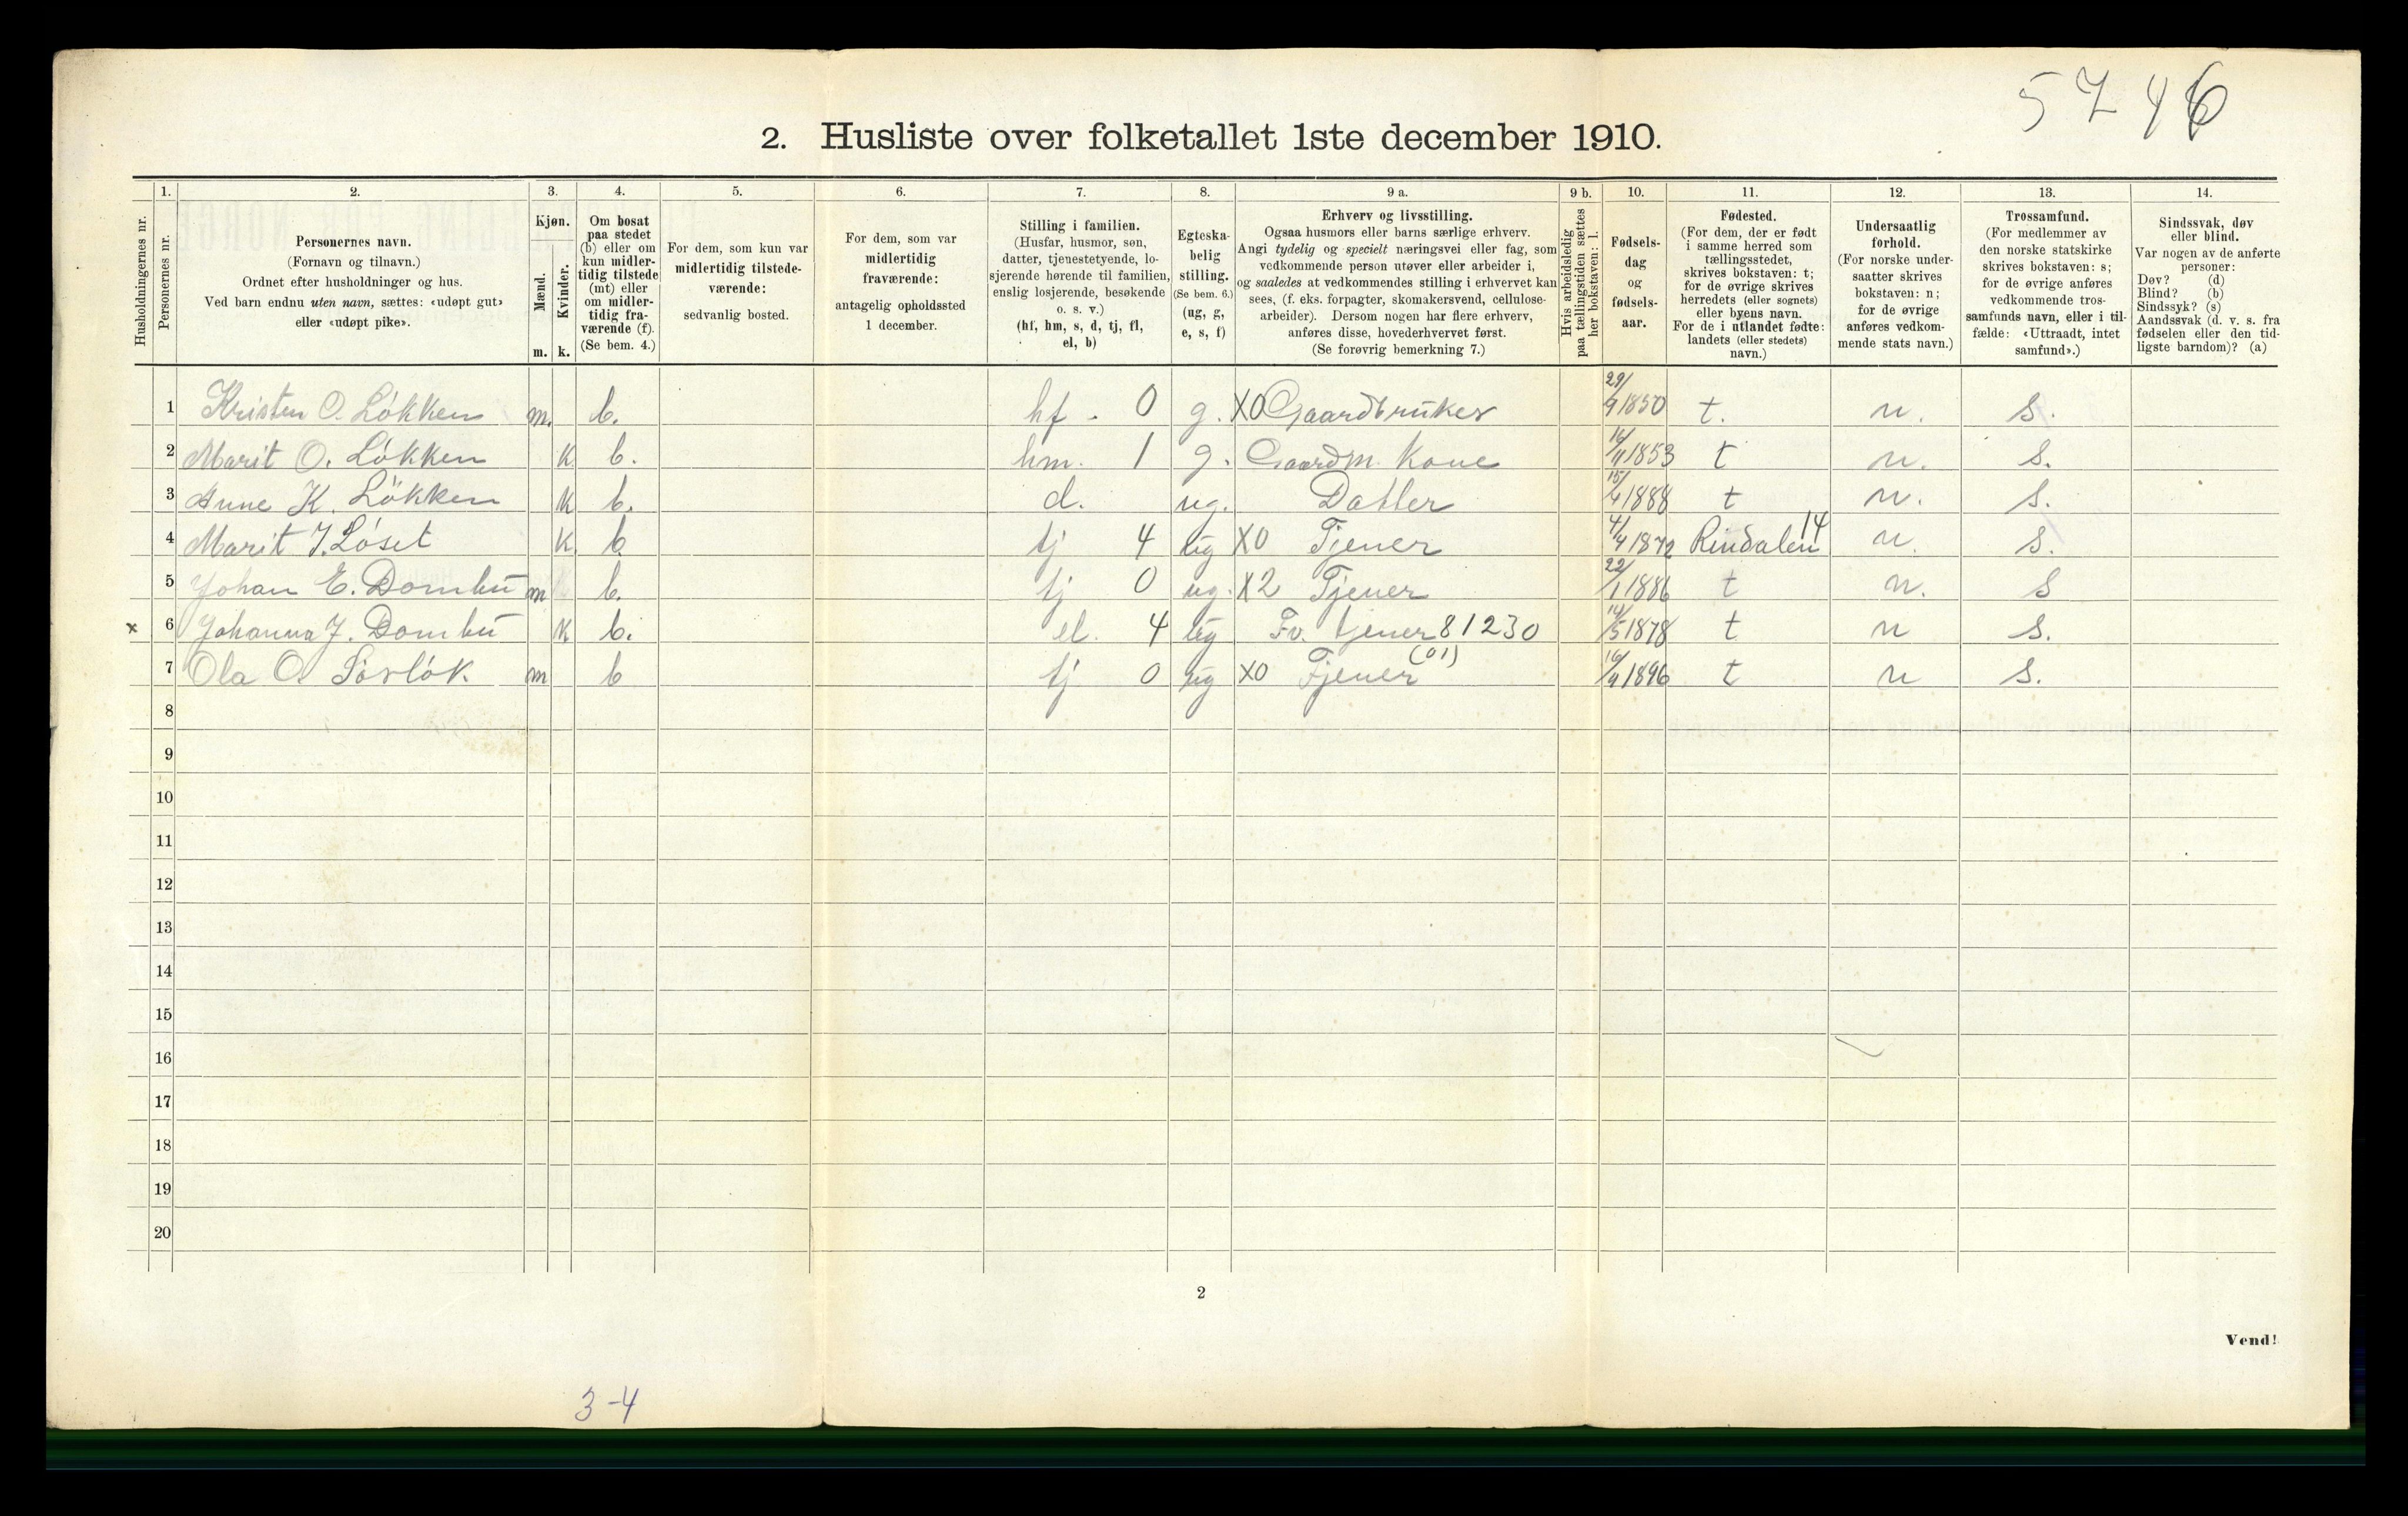 5746
2. Husliste over folketallet 1ste december 1910.
Husholdningernes nr.
1.
Personernes nr.
2.
Personernes navn.
(Fornavn og tilnavn.)
Ordnet efter husholdninger og hus.
Ved barn endnu uten navn, sættes: «udøpt gut»
eller «udøpt pike».
3.
Kjøn.
Mænd.
Kvinder.
m. k.
4.
Om bosat
paa stedet
(b) eller om
kun midler-
tidig tilstede
(mt) eller
om midler-
tidig fra-
værende (f).
(Se bem. 4.)
5.
For dem, som kun var
midlertidig tilstede-
værende:
sedvanlig bosted.
6.
For dem, som var
midlertidig
fraværende:
antagelig opholdssted
1 december.
7.
Stilling i familien.
(Husfar, husmor, søn,
datter, tjenestetyende, lo-
sjerende hørende til familien,
enslig losjerende, besøkende
o. s. v.)
(hf, hm, s, d, tj, fl,
el, b)
8.
Egteska-
belig
stilling.
(Se bem. 6.)
(ug, g,
e, s, f)
9 a.
Erhverv og livsstilling.
Ogsaa husmors eller barns særlige erhverv.
Angi tydelig og specielt næringsvei eller fag, som
vedkommende person utøver eller arbeider i,
og saaledes at vedkommendes stilling i erhvervet kan
sees, (f. eks. forpagter, skomakersvend, cellulose-
arbeider). Dersom nogen har flere erhverv,
anføres disse, hovederhvervet først.
(Se forøvrig bemerkning 7.)
9 b.
Hvis arbeidsledig
paa tællingstiden sættes
her bokstaven: l.
10.
Fødsels-
dag
og
fødsels-
aar.
11.
Fødested.
(For dem, der er født
i samme herred som
tællingsstedet,
skrives bokstaven: t;
for de øvrige skrives
herredets (eller sognets)
eller byens navn.
For de i utlandet fødte:
landets (eller stedets)
navn.)
12.
Undersaatlig
forhold.
(For norske under-
saatter skrives
bokstaven: n;
for de øvrige
anføres vedkom-
mende stats navn.)
13.
Trossamfund.
(For medlemmer av
den norske statskirke
skrives bokstaven: s;
for de øvrige anføres
vedkommende tros-
samfunds navn, eller i til-
fælde: «Uttraadt, intet
samfund».)
14.
Sindssvak, døv
eller blind.
Var nogen av de anførte
personer:
Døv? (d)
Blind? (b)
Sindssyk? (s)
Aandssvak (d. v. s. fra
fødselen eller den tid-
ligste barndom)? (a)
1 Kristen O. Løkken m. b. hf. 0 g. X0 Gaardbruker 29/9 1850 t. n. s.
2 Marit O. Løkken k b. hm. 1 g. Gaardm. Kone 16/11 1853 t n. s.
3 Anne K. Løkken k b. d. ug. Datter 15/4 1888 t n. s.
4 Marit J. Løset k. b tj 4 ug X0 Tjener 4/4 1872 Rindalen 14 n. s.
5 Johan E. Dombu m b. tj 0 ug. X2 Tjener 22/1 1886 t n. s
x 6 Johanna J. Dombu k b. el. 4 ug Fv. tjener 81230 (01) 14/5 1878 t n s.
7 Ola O. Sørløk. m b tj 0 ug X0 Tjener 16/9 1896 t n s.
8
9
10
11
12
13
14
15
16
17
18
19
20
2
Vend!
3-4